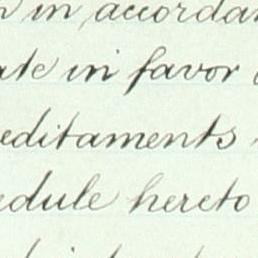 in accordan
ate in favor
editaments
edule hereto